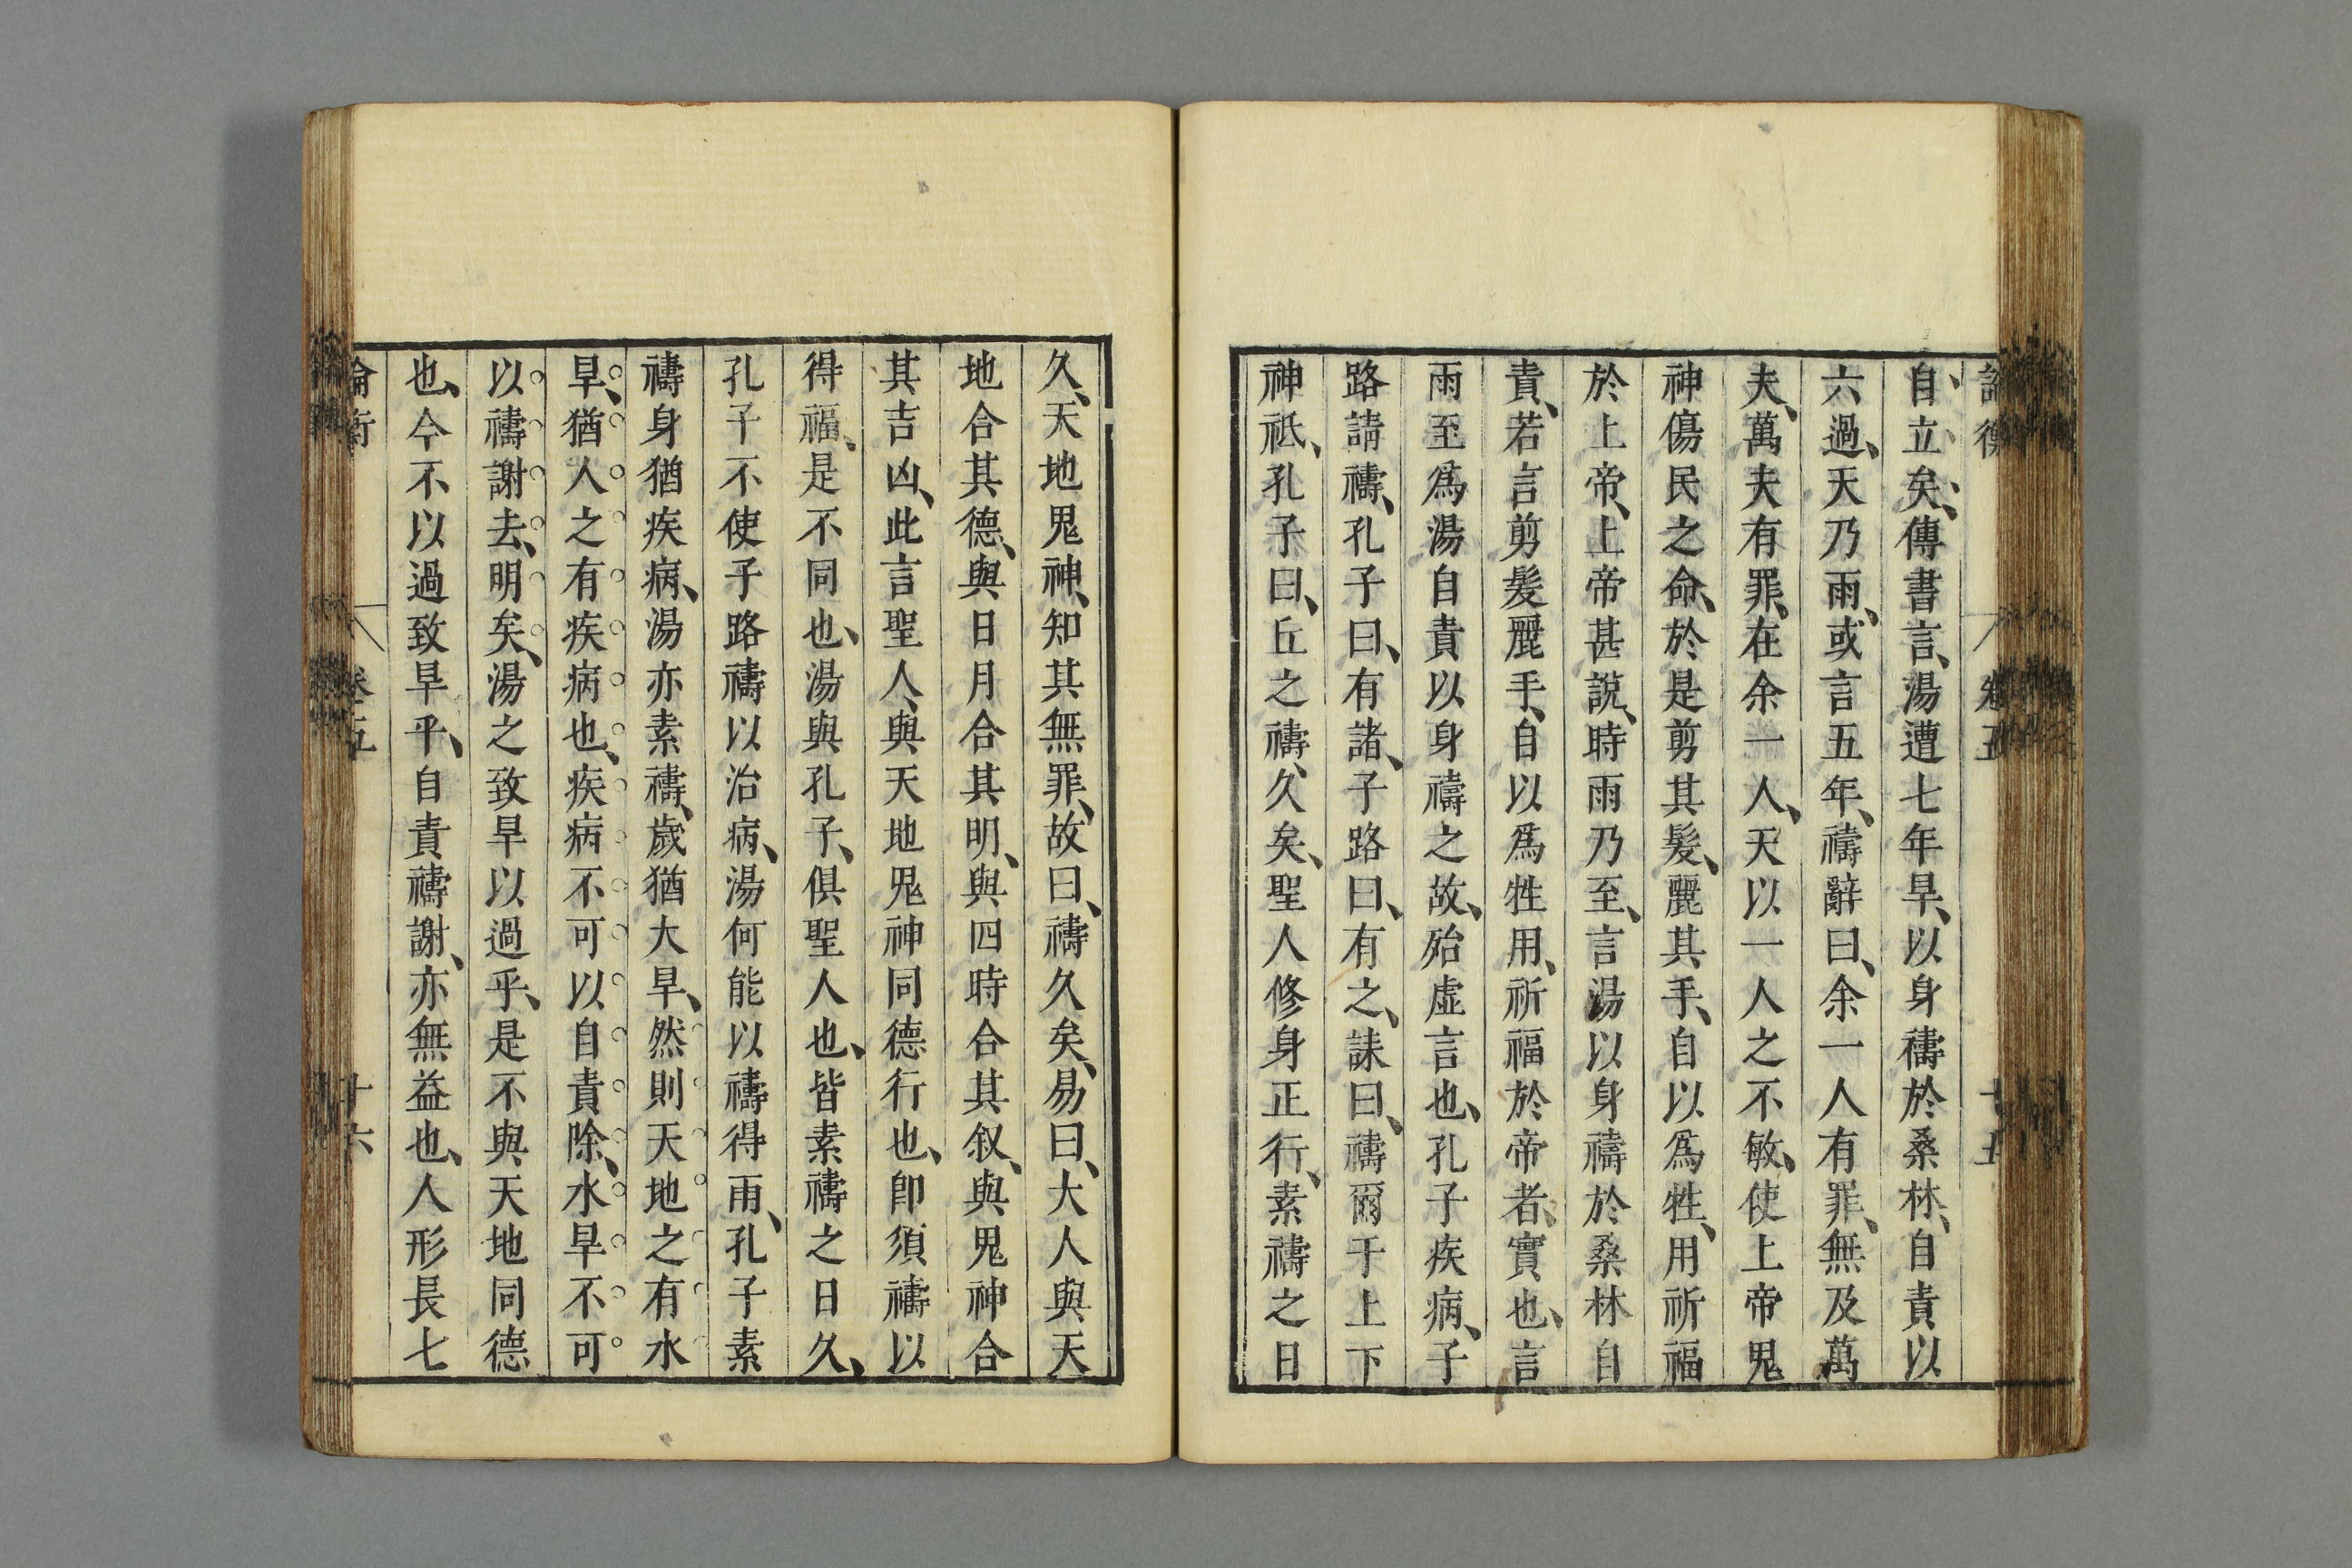 論衡 卷五 十五
自立矣、傳書言、湯遭七年旱、以身禱於桑林、自責以
六過、天乃雨、或言五年、禱辭曰、余一人有罪、無及萬
夫、萬夫有罪、在余一人、天以一人之不敏、使上帝鬼
神傷民之命、於是剪其髮、麗其手、自以爲牲、用祈福
於上帝、上帝甚說、時雨乃至、言湯以身禱於桑林自
責、若言剪髮麗手、自以爲牲用、祈福於帝者、實也、言
雨至爲湯自責以身禱之故、殆虛言也、孔子疾病、子
路請禱、孔子曰、有諸、子路曰、有之、誄曰、禱爾于上下
神祇、孔子曰、丘之禱、久矣、聖人修身正行、素禱之日
久、天地鬼神、知其無罪、故曰、禱久矣、易曰、大人與天
地合其德、與日月合其明、與四時合其叙、與鬼神合
其吉凶、此言聖人、與天地鬼神同德行也、卽須禱以
得福、是不同也、湯與孔子、俱聖人也、皆素禱之日久、
孔子不使子路禱以治病、湯何能以禱得雨、孔子素
禱身猶疾病、湯亦素禱、歲猶大旱、然則天地之有水
旱、猶人之有疾病也、疾病不可以自責除、水旱不可
以禱謝去、明矣、湯之致旱以過乎、是不與天地同德
也、今不以過致旱乎、自責禱謝、亦無益也、人形長七
論衡 卷五 十六